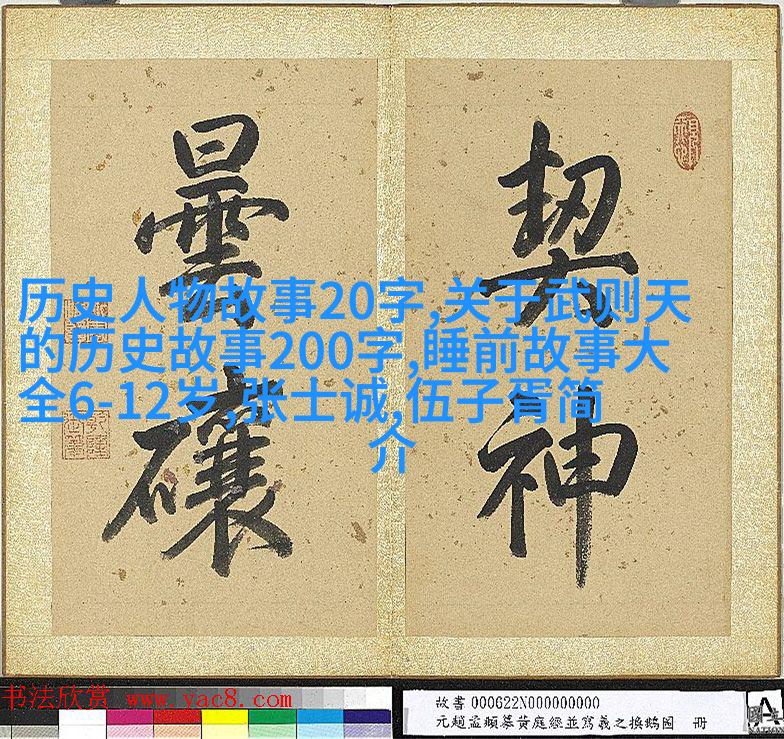 契神
曇
历史人物故事20字,关于武则天
的历史故事200字,睡前故事大
全6-12岁,张士诚,伍子胥简
介
书法欣赏 www.yac8.com
故書000622N000000000
元趙孟頫摹黃庭經並寫羲之換鵝圖 冊